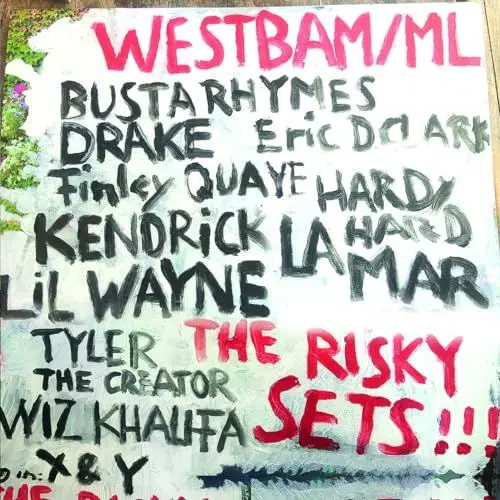 WESTBAM/ML
BUSTA RHYMES
DRAKE Eric D CLARK
Finley QUAYE HARDY
HARD
KENDRICK LAMAR
LiL WAYNE
TYLER THE CREATOR
THE RISKY SETS!!!
WIZ KHALIFA
X & Y
THE